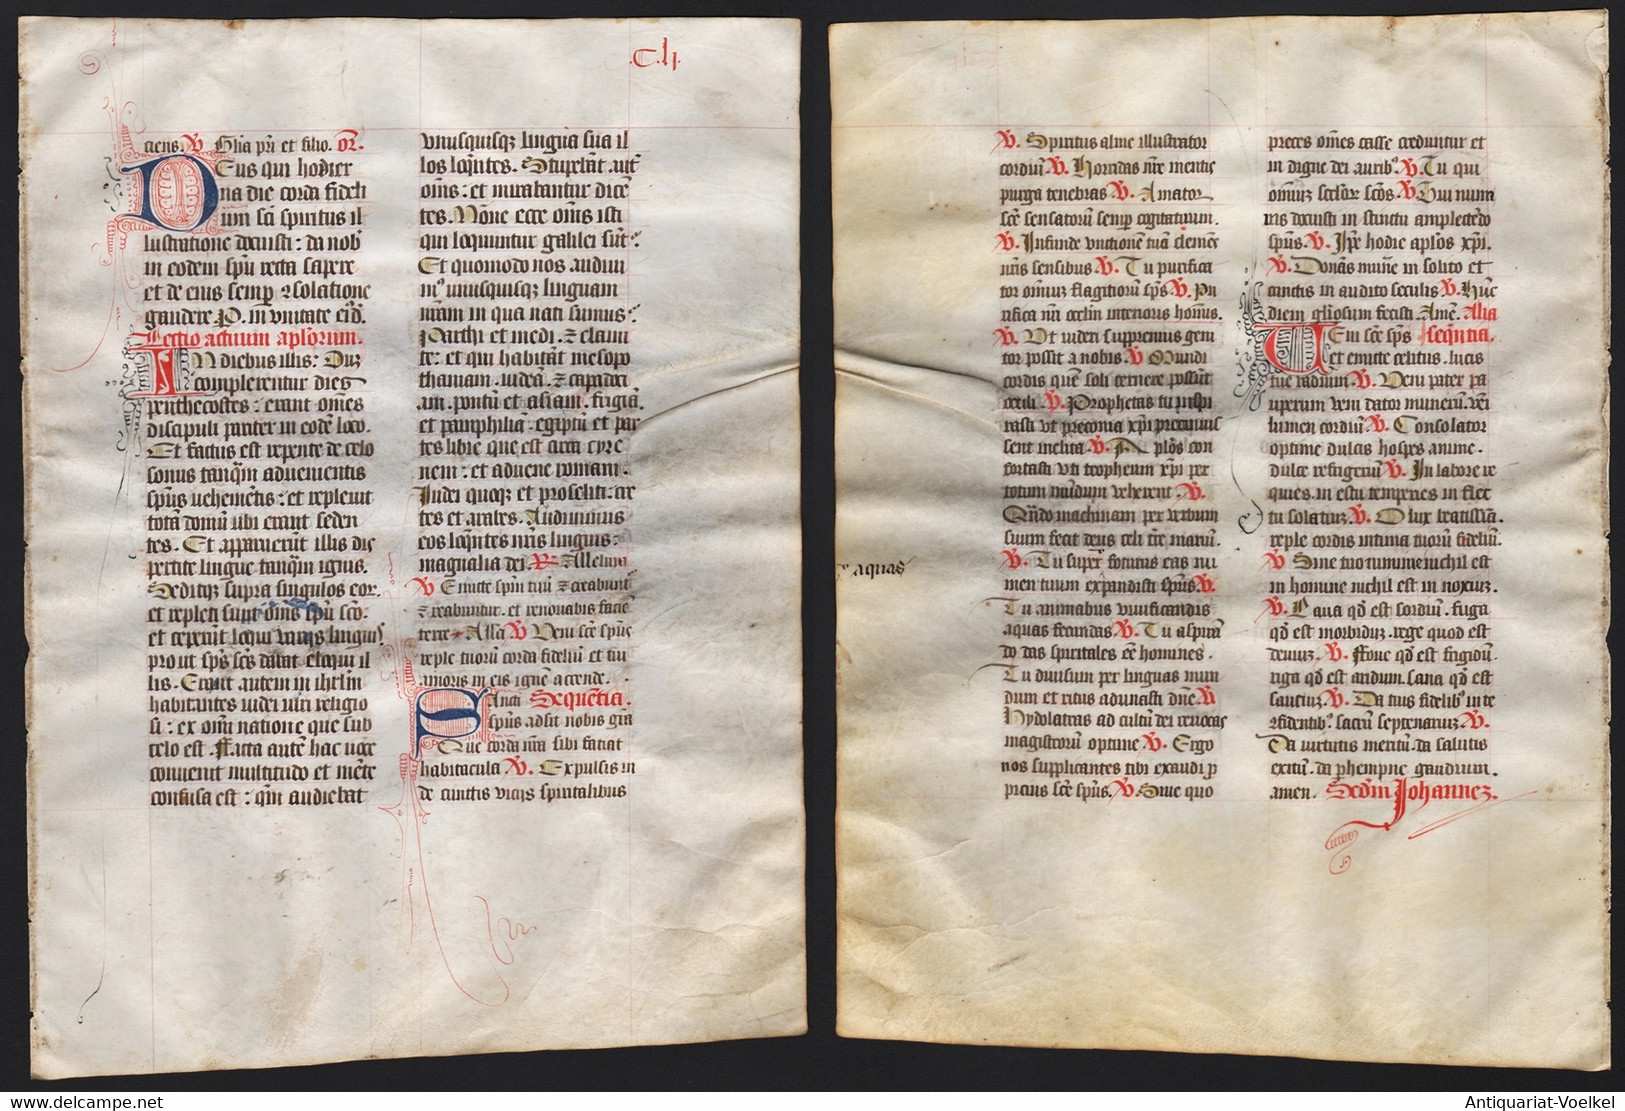 .C.lj.
ciens. V. Glia pri et filio. Or.
Deus qui hodier
na die corda fideli
um sci spiritus il
lustratione docuisti: da nob
in eodem spu recta sapere
et de eius semp 2solatione
gaudere P. in vnitate eid.
Lectio actuum aplorum.
In diebus illis: Dum
complerentur dies
penthecostes: erant omes
discipuli pariter in eode loco.
Et factus est repente de celo
sonus tanqm aduenientis
spus uehemetis: et repleuit
tota domu ubi erant seden
tes. Et apparuerut illis dis
pertite lingue tanqm ignis.
Seditqz supra singulos eor.
et repleti sunt oms spu sco.
et ceperut loqui varijs linguis
prout sps scs dabat eloqui il
lis. Erant autem in ihrlm
habitantes iudei viri religio
si: ex omi natione que sub
celo est. Facta aute hac uoce
conuenit multitudo et mete
confusa est: qm audiebat
vnusquisqz lingua sua il
los loqntes. Stupebat aut
oms: et mirabantur dice
tes. None ecce oms isti
qui loquuntur galilei sut?
Et quomodo nos audiui
mus vnusquisqz linguam
nram in qua nati sumus?
Parthi et medi: et elami
te: et qui habitat mesopo
thamiam. iudea. z capadoci
am. pontu et asiam. frigia.
et pamphilia: egiptu et par
tes libie que est circa cyre
nem: et aduene romani.
Iudei quoqz et proseliti: cre
tes et arabes. Audiuimus
eos loqntes nris linguis:
magnalia dei. R. Alleluia
V Emitte spm tuu z creabunt
z creabuntur. et renouabis facie
terre. Alla V Veni sce spus
reple tuoru corda fideliu et tui
amoris in eis igne accende.
Sancti Sequetia.
spus adsit nobis gra
Que corda nra sibi faciat
habitacula V. Expulsis in
de cunctis vicijs spiritalibus
V. Spiritus alme illustrator
cordiu V. Horridas nre mentis
purga tenebras V. Amator
sce sensatoru semp cogitatuum.
V. Infunde vnctionem tua clemes
nris sensibus V. Tu purifica
tor omiuz flagitioru sps V. Pu
rifica nri oclm interioris homis.
V. Vt videri supremus geni
tor possit a nobis V Mundi
cordis que soli cernere possut
oculi V. Prophetas tu inspi
rasti vt preconia xpi precinuis
sent inclita V. Aplos con
fortasti vti tropheum xpi per
totum mudum veherent. V.
Qndo machinam per verbum
suum fecit deus celi tre mariu.
V. Tu super foturus eas nu
men tuum expandisti spus V.
Tu animabus viuificandis
aquas fecundas V. Tu aspiran
do das spiritales ee homines.
Tu diuisum per linguas mun
dum et ritus adunasti dne. V
Hydolatras ad cultu dei reuocas
magistroru optime V. Ergo
nos supplicantes tibi exaudi p
picius sce spus. V. Sine quo
aquas
preces omes casse creduntur et
indigne dei aurib. V. Tu qui
omiuz seclor scos. V. Tui numi
nis docuisti instinctu amplectedo
spus. V. Ipe hodie aplos xpi.
V. Donas mune insolito et
cunctis inaudito seculis V. Hunc
diem gliosum fecisti. Ame. Alia
Veni sce sps sequntia.
et emitte celitus. lucis
tue radium V. Veni pater pa
uperum veni dator muneru. veni
lumen cordiu V. Consolator
optime dulcis hospes anime.
dulce refrigeriu V. In labore re
quies. in estu temperies in fle
tu solatiuz V. O lux beatissia.
reple cordis intima tuoru fideliu.
V Sine tuo numine nichil est
in homine nichil est innoxiuz.
V. Laua qd est sordiu. riga
qd est morbiduz. rege quod est
deuiuz. V. Foue qd est frigidu.
riga qd est aridum. sana qd est
sauciuz V. Da tuis fidelib in te
2fidentib. sacru septenariuz V.
Da virtutis meritu. da salutis
exitu. da phempne gaudium.
amen. Scdm Johannez.
Antiquariat-Voelkel